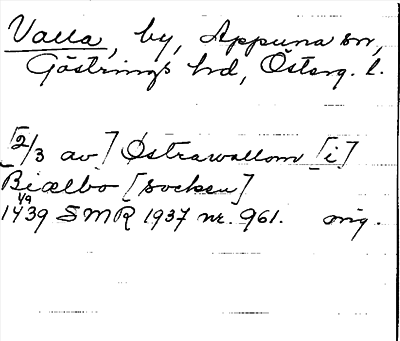 Valla, by, Appuna sn,
Göstrings hd, Österg. l.
[2/3 av] Østrawallom [i]
Biælbo [socken]
1/9
1439 SMR 1937 nr. 961. orig.